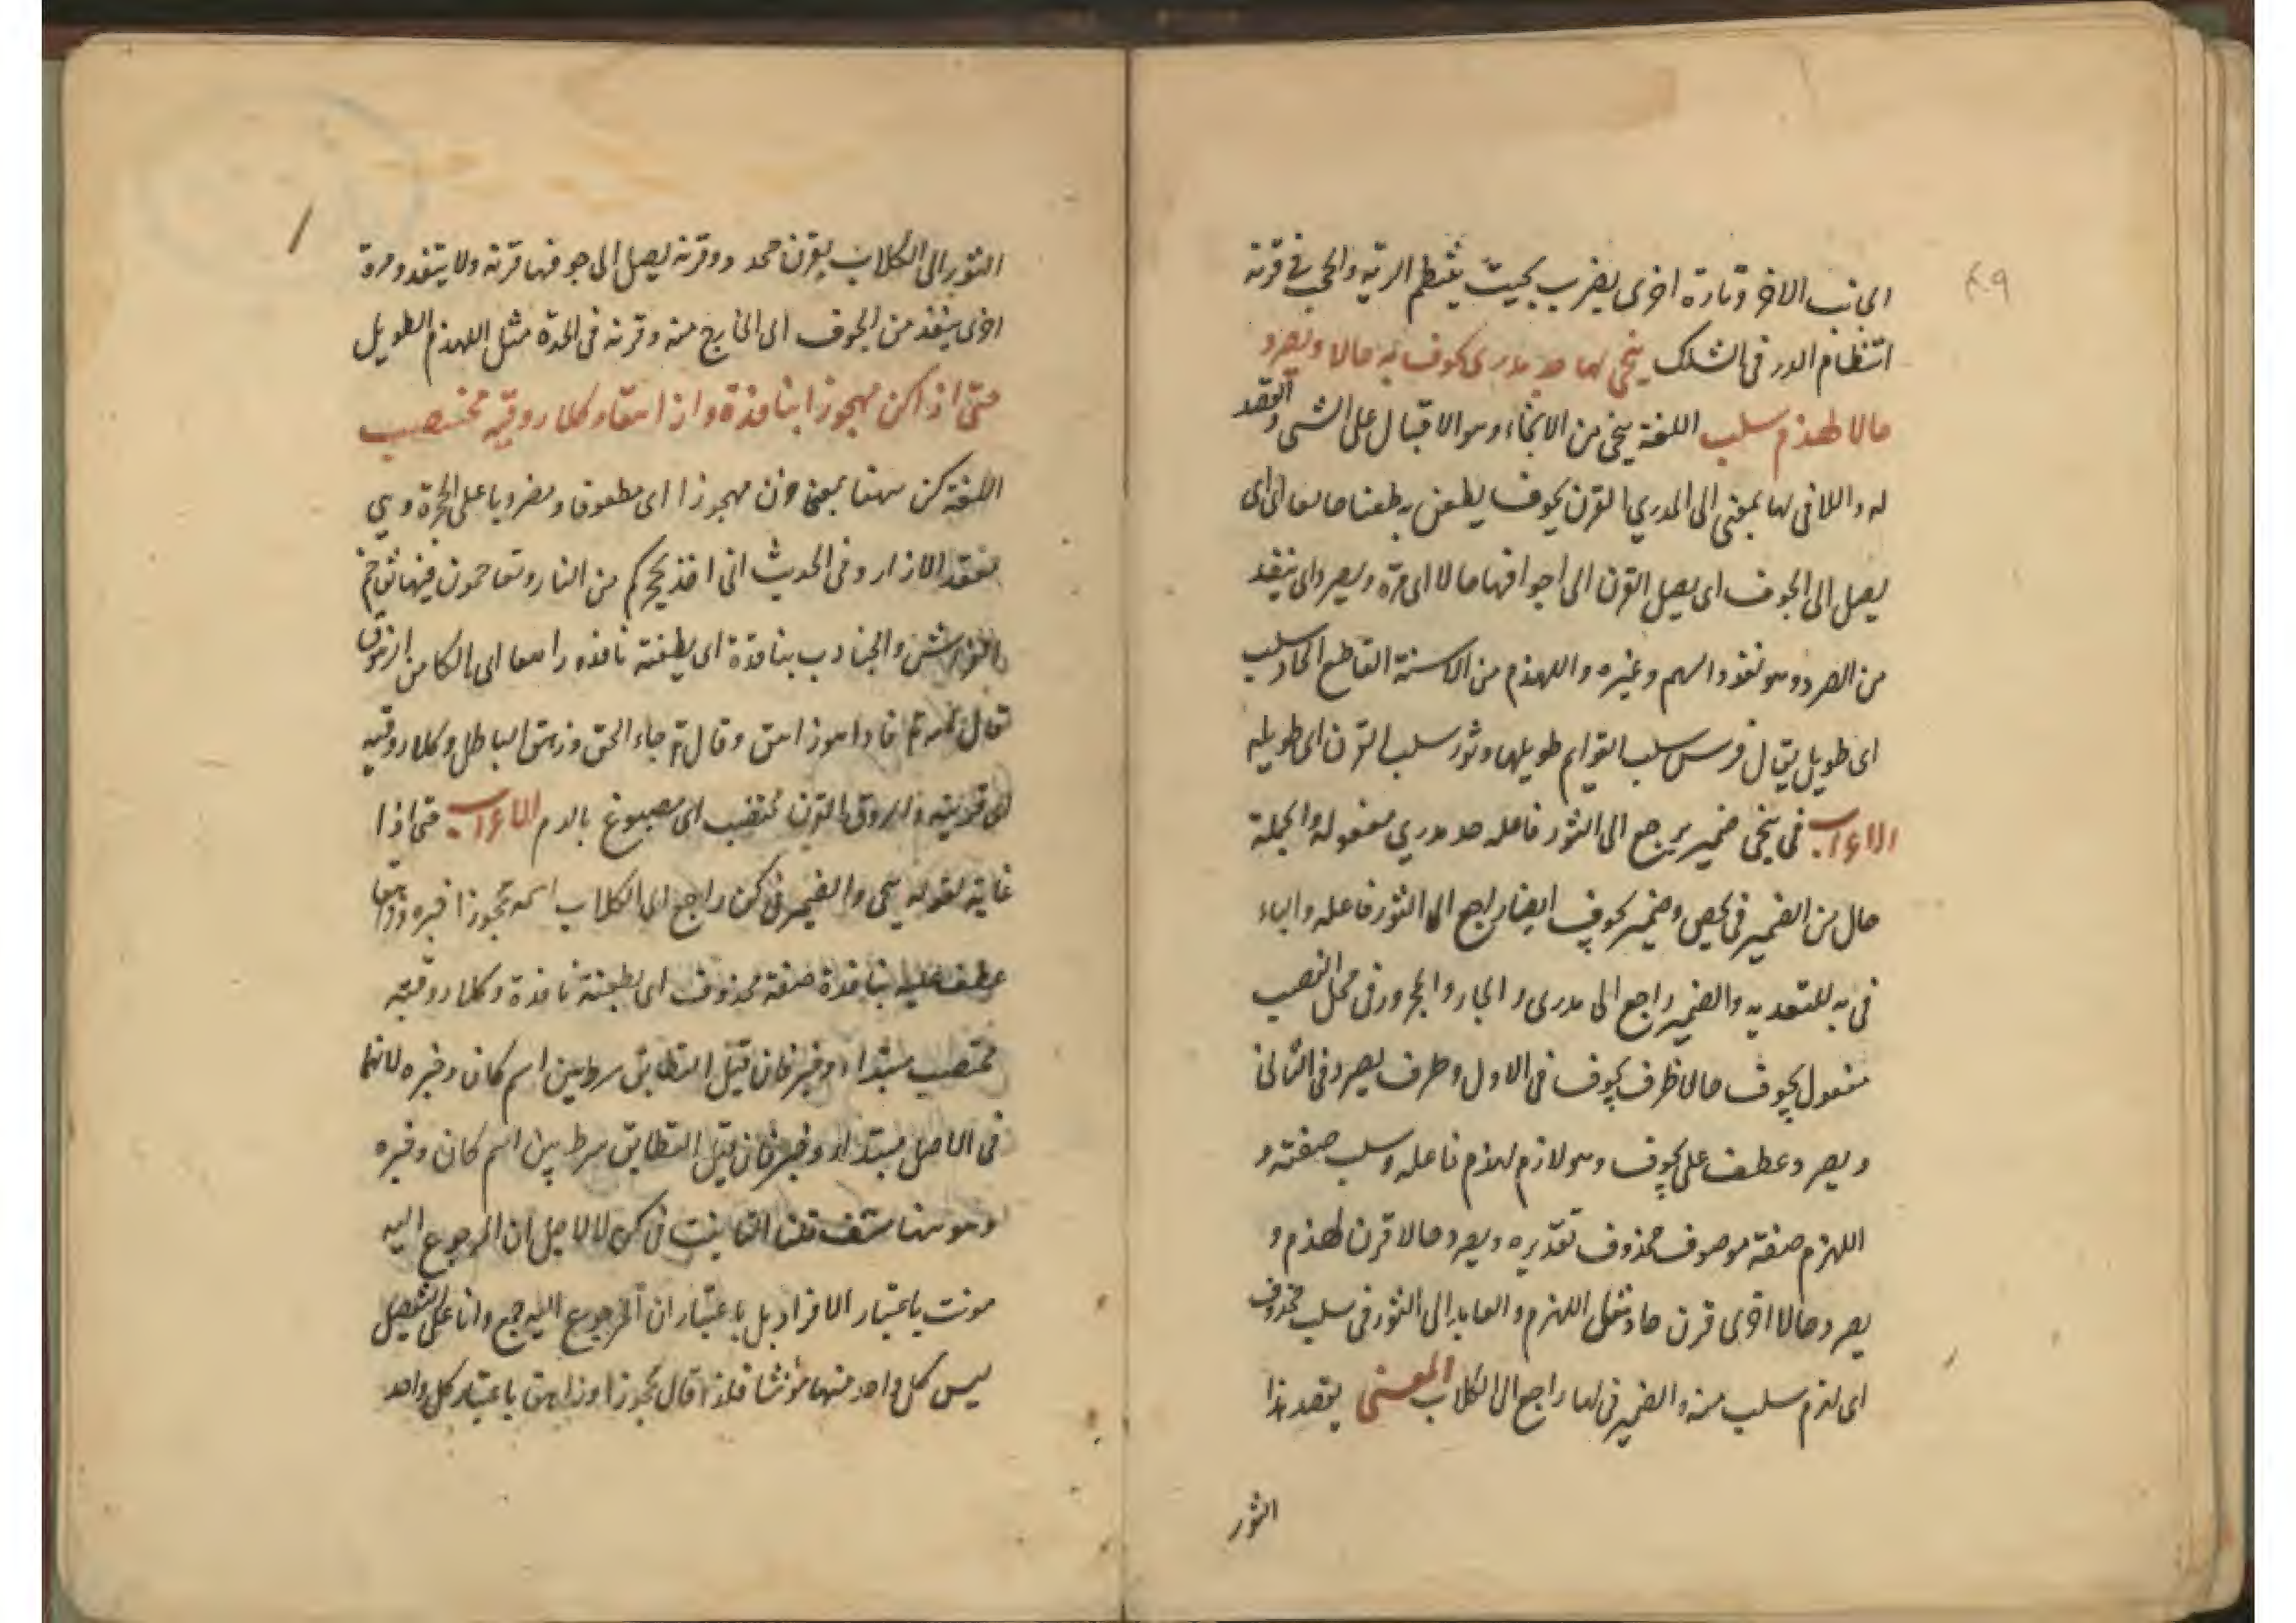 ٤٩
الجانب الاخر وتارة اخرى يضرب بحيث ينتظم الرية والحجب في قرنة
انتظام الدر في السلك ينحي لها حد مدرى يجوف به حالا ويصرد
حالا لهذم سلب اللغة ينحي من الانحاء وهو الاقبال على الشي والقصد
له واللام في لها بمعنى الى المدري القرن يجوف يطعن به طعنا
يصل الى الجوف اى يصل القرن الى اجوافها حالا اى مرة ويصرد اى ينفذ
من الصرد وهو نفوذ السهم وغيره واللهذم من الاسنة القاطع الحاد سلب
اى طويل يقال فرس سلب القوايم طويلها وثور سلب القرن اى طويله
الاعراب في ينحي ضمير يرجع الى الثور فاعله حد مدري مفعوله والجملة
حال من الضمير في وضمير يجوف ايضا راجع الى الثور فاعله والباء
في به للتعدية والضمير راجع الى مدرى والجار والمجرور في محل النصب
مفعول يجوف حالا ظرف يجوف في الاول وظرف يصرد في الثاني
ويصرد عطف على يجوف وهو لازم لهذم فاعله وسلب صفته و
اللهذم صفة موصوف محذوف تقديره ويصرد حالا قرن لهذم و
يصرد حالا اخرى قرن حاد مثل اللهذم والعايد الى الثور في سلب محذوف
اى لهذم سلب منه والضمير في لها راجع الى الكلاب المعنى يقصد هذا
الثور
الثور الى الكلاب بقرن محدد وقرنه يصل الى جوفها قرنه ولا ينفذ ومرة
اخرى ينفذ من الجوف الى الخارج منه وقرنه في الحدة مثل اللهذم الطويل
حتى اذا كن مهجوزا بنافذة وازاهقا وكلا روقيه مختضب
اللغة كن ههنا بمعنى مهجوزا اى مطعونا ومضروبا على الحجزة وهي
معقد الازار وفي الحديث اني اخذ بحجزكم من النار وتقاحمون فيها تقحم
الفراش والجنادب بنافذة اى بطعنة نافذه زاهقا اى هالكا من الزهوق
قال الله تع فاذا هو زاهق وقال تع جاء الحق وزهق الباطل وكلا روقيه
اى قرنيه والروق القرن مختضب اى مصبوغ بالدم الاعراب حتى اذا
غاية لقوله ينحي والضمير في كن راجع الى الكلاب اسمه محجوزا خبره وزاهقا
عطف عليه بنافذة صفة محذوف اى بطعنة نافذة وكلا روقيه
مختضب مبتداء وخبر فان قيل التطابق شرط بين اسم كان وخبره لانهما
في الاصل مبتداء وخبر فان قيل التطابق شرط بين اسم كان وخبره
وهو ههنا منتف قلنا التانيث في كن لا لاجل ان المرجوع اليه
مونث باعتبار الافراد بل باعتبار ان المرجوع اليه جمع واما على التفصيل
ليس كل واحد منها مؤنثا فلذا قال محجوزا وزاهقا باعتبار كل واحد